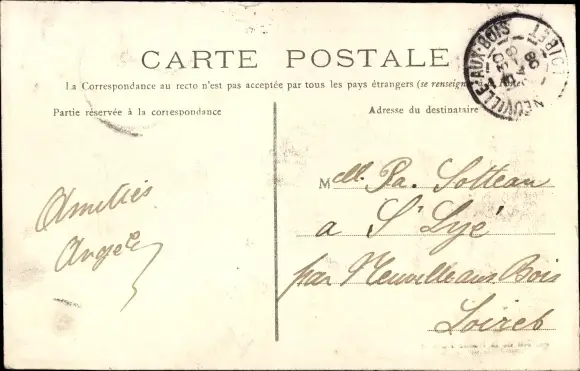 CARTE POSTALE
La Correspondance au recto n'est pas acceptée par tous les pays étrangers (se renseign
Partie réservée à la correspondance
Adresse du destinataire
NEUVILLE-AUX-BOIS
LOIRET
Amitiés
Angèle
Melle Pa. Sotteau
a St Lyé
par Neuville aux Bois
Loiret